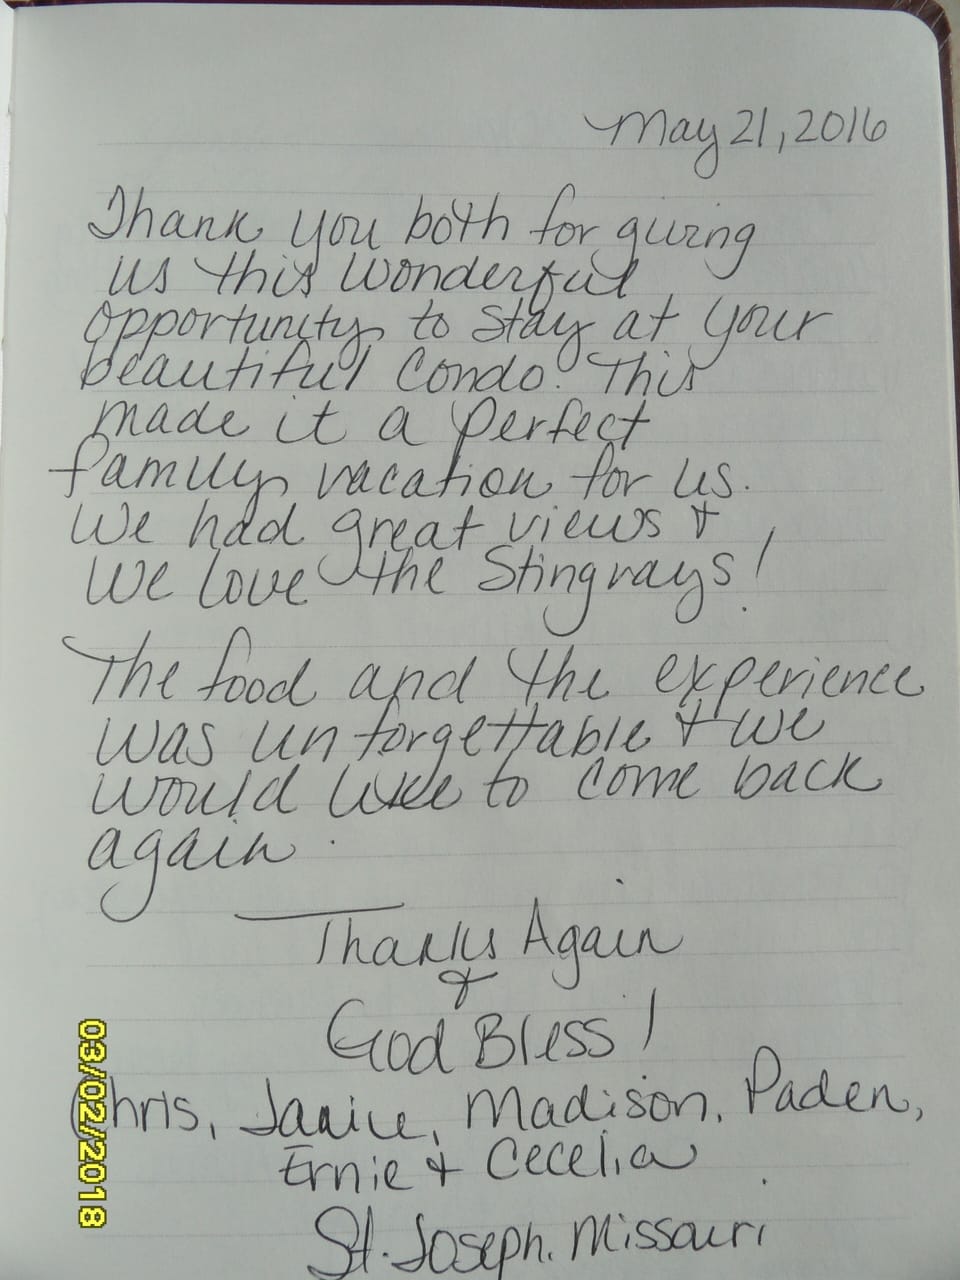 May 21, 2016
Thank you both for giving
us this wonderful
opportunity to stay at your
beautiful Condo. This
made it a perfect
family vacation for us.
We had great views &
We love the Stingrays!
The food and the experience
was unforgettable & we
would like to come back
again.
Thanks Again
&
God Bless!
Chris, Janice, Madison, Paden,
Ernie & Cecelia
St. Joseph. Missouri
03/02/2018